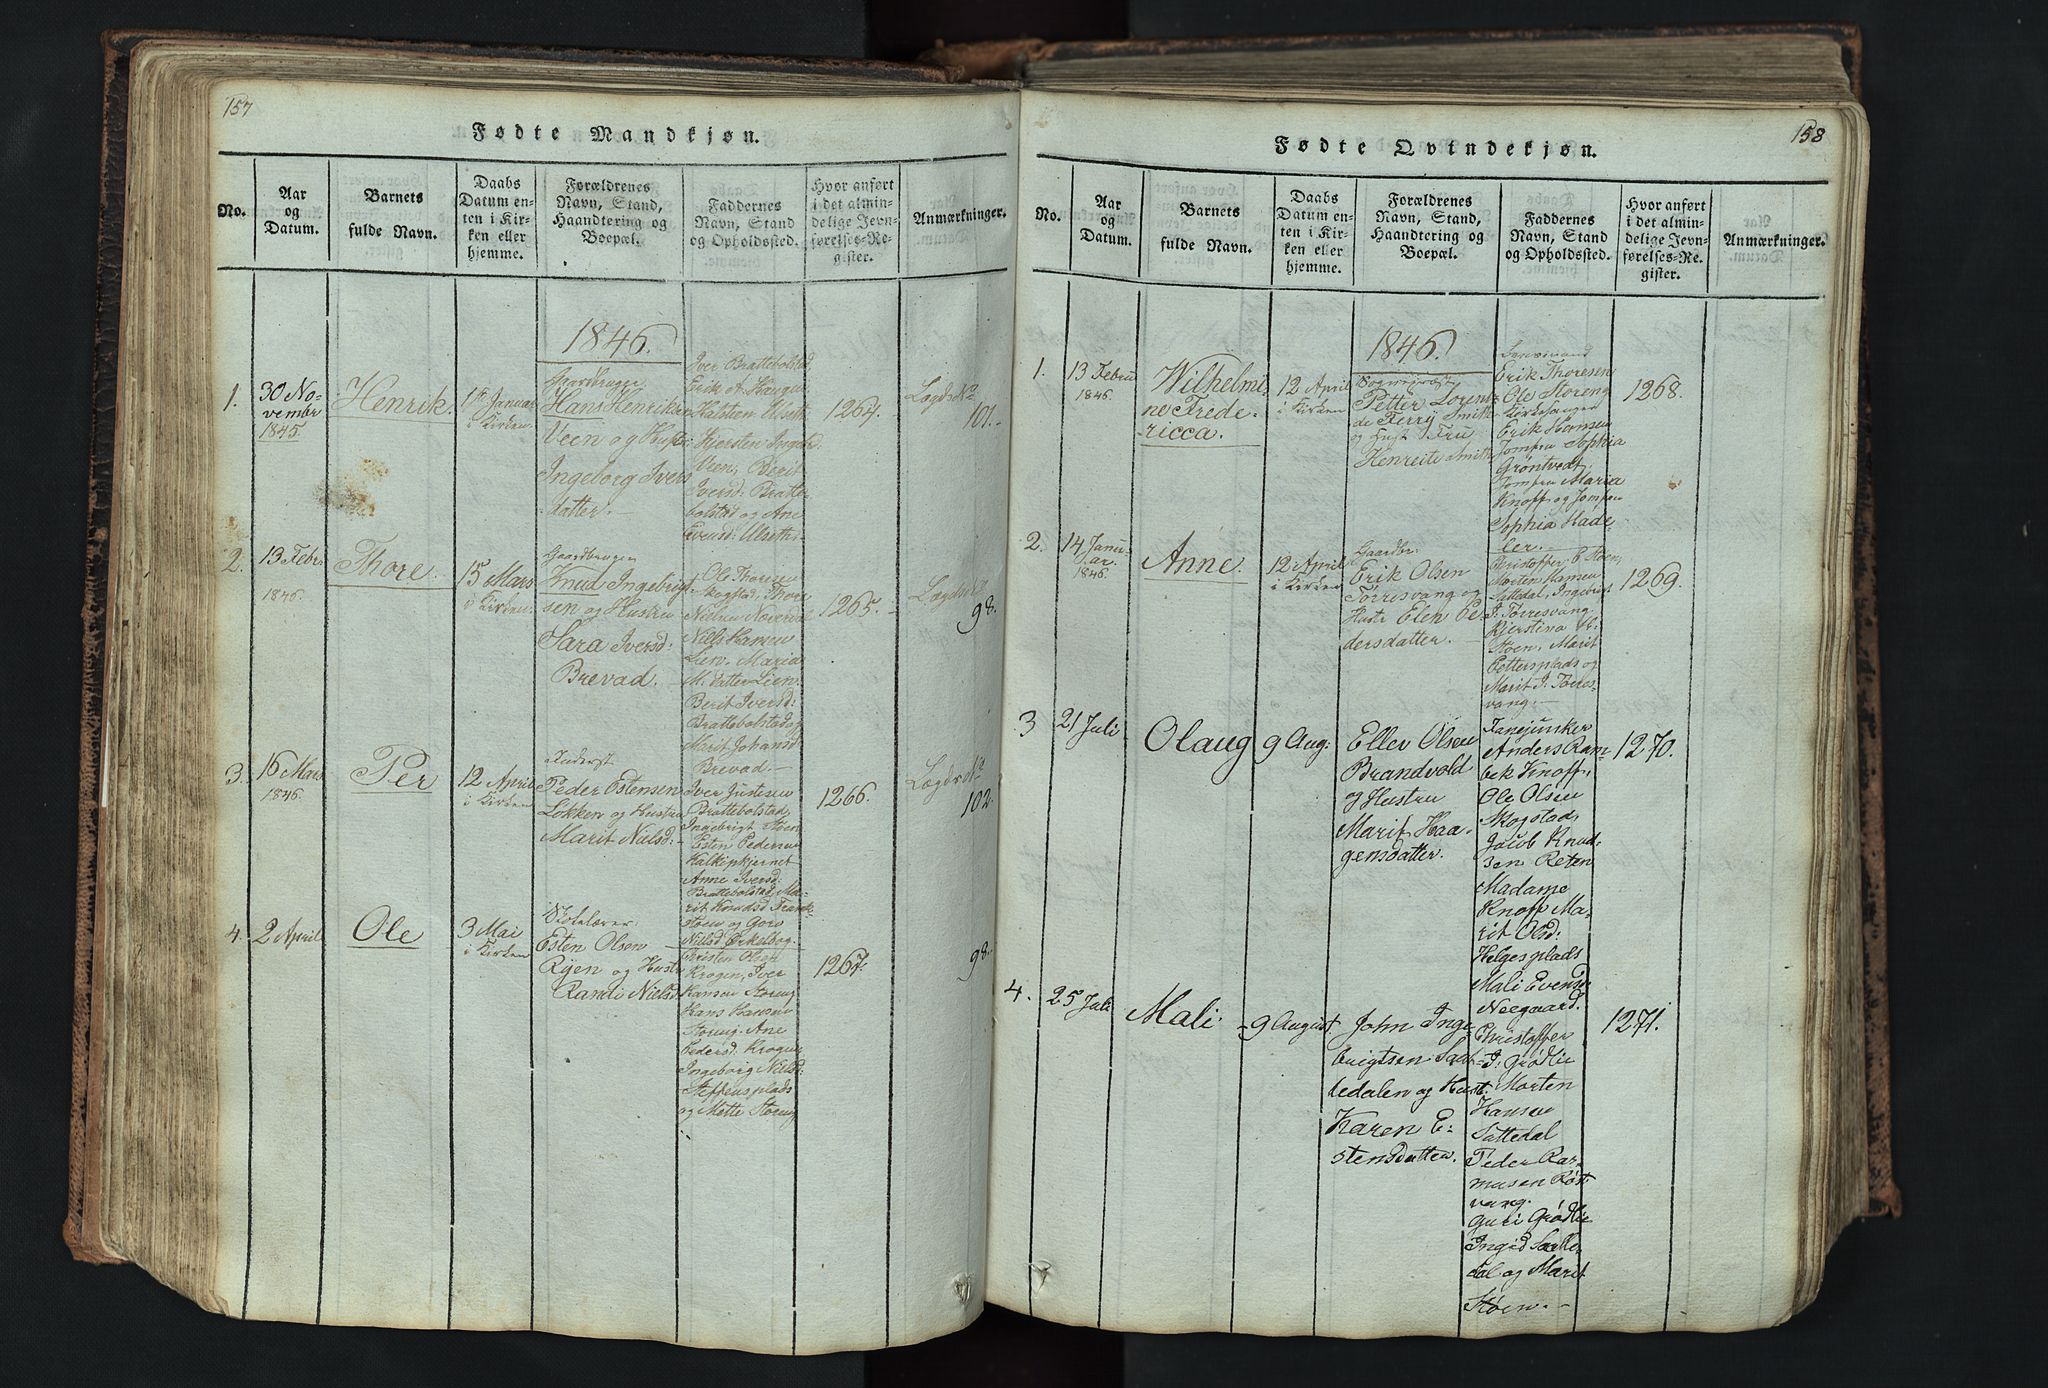 157
Fødte Mandkjøn.
No.
Aar
og
Datum.
Barnets
fulde Navn.
Daabs
Datum en-
ten i Kir-
ken eller
hjemme.
Forældrenes
Navn, Stand,
Haandtering og
Boepæl.
Faddernes
Navn, Stand
og Opholdssted.
Hvor anført
i det almin-
delige Jevn-
førelses-Re-
gister.
Anmærkninger.
1846.
1.
30 No-
vembr
1845.
Henrik.
Januar
i Kirken.
Gaardbruger
Hans Henriks
Veen og Hust
Ingeborg Ivers
datter.
Iver Brattebolstad
Erik A. Haugen
Halsten Ulseth
Kjersten Ingebr
Veen, Berit
Iversd: Bratte-
bolstad og Ane
Evensd: Ulseth.
1264.
Lægds No
101.
2.
13 Febr.
1846.
Thore.
15 Mars
i Kirken.
Gaardbruger
Knud Ingebrigt-
sen og Hustru
Sara Iversd:
Brevad.
Ole Thoresen
Skogstad, Thore
Nielsen
Niels Hansen
Lien, Maria
M. datter Lien
Berit Iversd:
Brattebolstad og
Marit Johansd:
Brevad.
1265.
98.
3.
16 Mars
1846.
Per
12 April
i Kirken
Inderst
Peder Estensen
Løkken og Hustru
Marit Nielsd:
Iver Justesen
Brattebolstad,
Ingebrigt Støen
Esten Pedersen
Anne Iversd:
Brattebolstad, Ma-
rit Knudsd
Støen og Goro
Nielsd
1266.
Lægds No
102.
4.
2 April
Ole
3 Mai
i Kirken
Skolelærer
Esten Olsen
Ryen og Hustr
Randi Nielsd
Christen Olsen
Krogen, Iver
Hansen Storeng
Hans Hansen
Ane
Pedersd: Krogen
Ingeborg Nielsd:
Steffensplads
og Mette Storeng
1267.
98.
158
Fødte Qvindekjøn.
No.
Aar
og
Datum.
Barnets
fulde Navn.
Daabs
Datum en-
ten i Kir-
ken eller
hjemme.
Forældrenes
Navn, Stand,
Haandtering og
Boepæl.
Faddernes
Navn, Stand
og Opholdssted.
Hvor anført
i det almin-
delige Jevn-
førelses-Re-
gister.
Anmærkninger.
1846.
1.
13 Febru
1846.
Wilhelmi-
ne Frede-
ricca.
12 April
i Kirken
Sognepræst
Petter Lorentz
de Ferry Smith
og Hust Fru
Henreite Smith
Erik Thoresen
Ole Storeng
Kirkesanger
Erik Hansen
Jomfru Sophia
Grøntvedt,
Jomfru Maria
Knoff og Jomfru
Sophia Hade-
ler.
1268.
2.
14 Janu-
ar.
1846.
Anne.
12 April
i Kirken
Gaardbr.
Erik Olsen
Torresvang og
Hustr Elen Pe-
dersdatter.
Christoffer E Støen,
Morten Hansen
Sattedal, Ingebrigt
J. Torresvang
Kjerstina
Støen, Marit
Pettersplads og
Marit J. Torres-
vang.
1269.
3
21 Juli
Olaug
9 Aug:
Eller Olsen
Brandvold
og Hustru
Marit Haa-
gensdatter.
Fanejunker
Anders Ram-
bek Knoff,
Ole Olsen
Skogstad,
Jacob Knud-
sen Reten
Madame
Knoff Ma-
rit Olsd:
Helgesplads
Mali Evensd
Neegaard.
1270.
4.
25 Juli
Mali.
9 August
John Inge-
brigtsen Sat-
tedalen og Hust:
Karen E-
stensdatter.
Christoffer
J. Grødlie
Morten
Hansen
Sattedal
Peder Ras-
musen Røst-
vang.
Guri Grødlie
Ingid Satte-
dal og Marit
Støen.
1271.